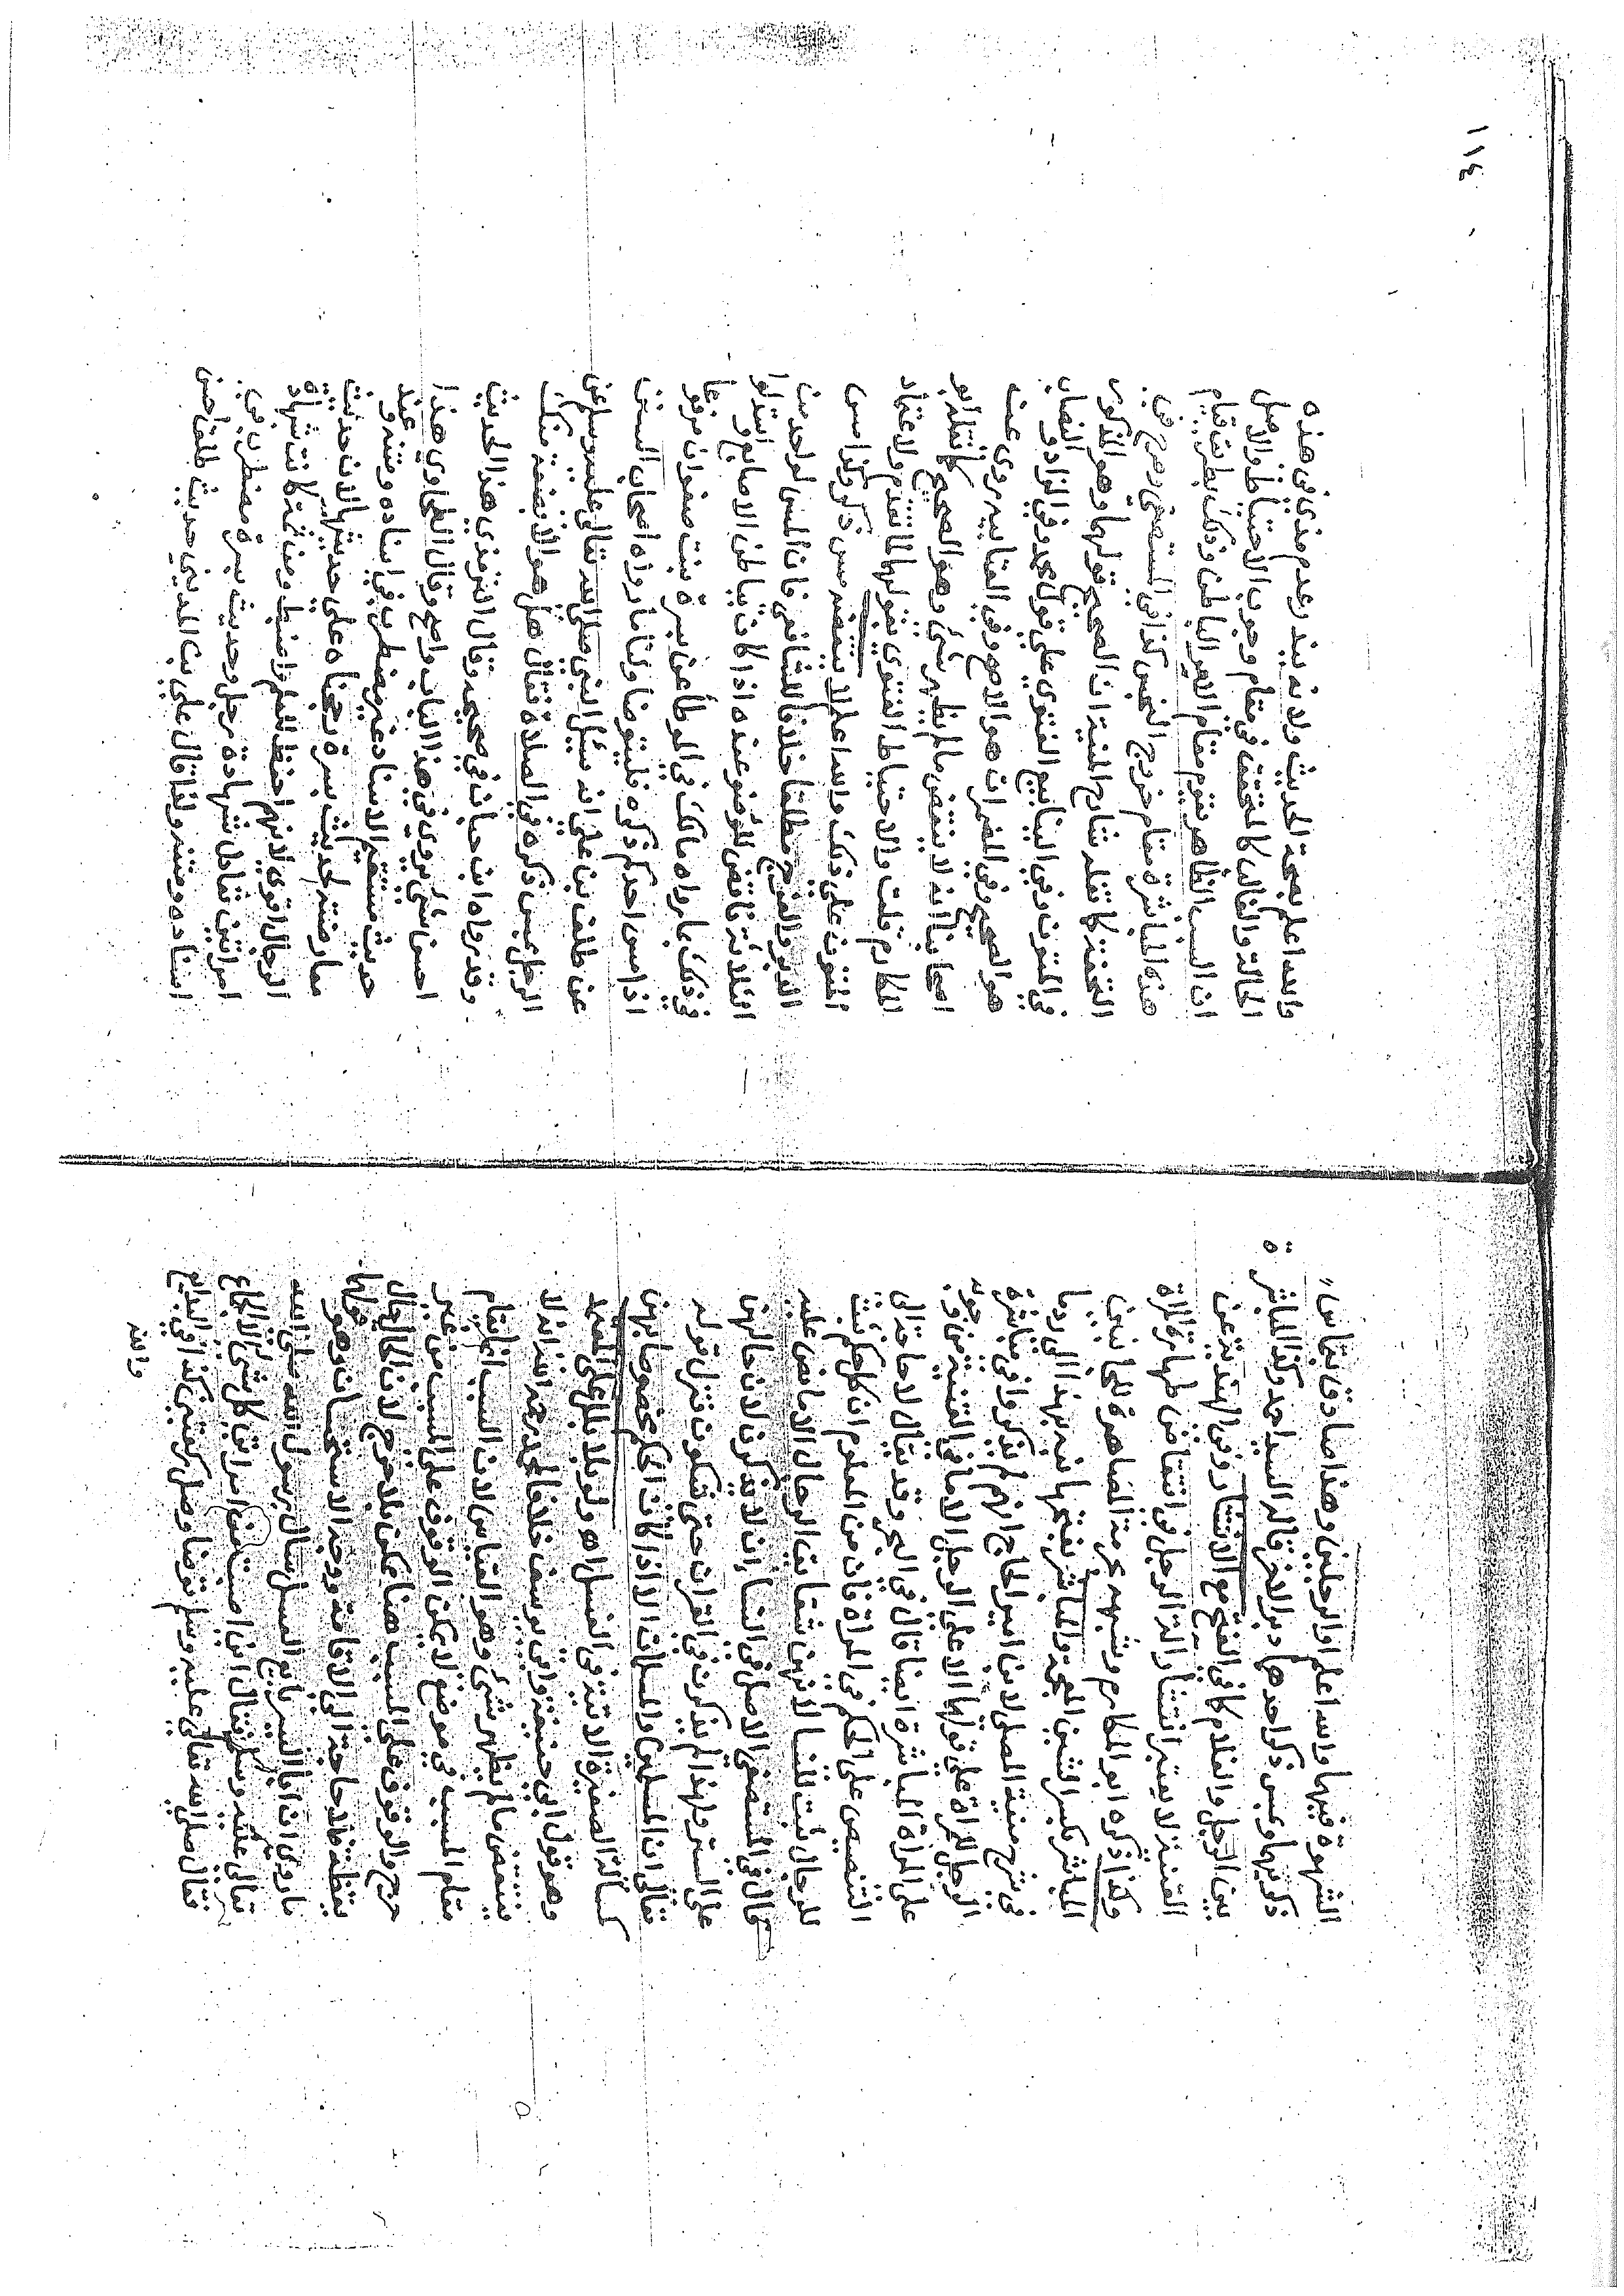 الشهوة فيها والله اعلم او الرجلين وهذا صادق بتماس
ذكريهما او بمس ذكر احدهما دبر الاخر قاله السيد احمد وكذا المباشرة
بين الرجل والغلام كما في الفتح مع الانتشار وفي الهندية عن
القنية لا يعتبر انتشار الة الرجل في انتقاض طهارة المراة
وكذا ذكره ابو المكارم وشبهه بحرمة المصاهرة للجانبين
المباشر بكسر الشين المعجمة والمباشر بفتحها
في شرح منية المصلي لابن امير الحاج انهم لم يذكروا في مباشرة
الرجل للمراة على قولهما الا على الرجل الا ما في القنية من وجوبه
على المراة المباشرة ايضا قال في البحر وقد يقال لا حاجة الى
التنصيص على الحكم في المراة فان من المعلوم ان كل حكم ثبت
للرجال ثبت للنسا لانهن شقايق الرجال الا ما نص عليه
قال في المستصفى الاصل في النسا ان لا يذكرن لان حالهن
على الستر ولهذا لم يذكرن في القران حتى شكون فنزل قوله
تعالى ان المسلمين والمسلمات الا اذا كان الحكم مخصوصا بهن
كمسألة الصغيرة الاتية في الغسل اه ولو بلا بلل على المعتمد
وهو قول ابي حنيفة وابي يوسف خلافا لمحمد رحمه الله انه لا
ينتقض ما لم يظهر شي وهو القياس لان السبب انما يقام
مقام المسبب في موضع لا يمكن الوقوف على المسبب من غير
حرج والوقوف على المسبب هنا ممكن بلا حرج لان الحال حال
يقظة فلا حاجة الى الاقامة ووجه الاستحسان وهو قولهما
ما روي ان ابا اليسر بايع العسل سال رسول الله صلى الله
تعالى عليه وسلم فقال اني اصبت من امراتي كل شي الا الجماع
فقال صلى الله تعالى عليه وسلم توضا وصل ركعتين كذا في البدايع
والله
١١٤
والله اعلم بصحة الحديث ولانه يندر عدم مذي في هذه
الحالة والغالب كالمتحقق في مقام وجوب الاحتياط والاصل
ان السبب الظاهر يقوم مقام الامر الباطن وذلك بطريق قيام
هذه المباشرة مقام خروج النجس كذا في المستصفى وصرح في
التحفة كما نقله شارح المنية ان الصحيح قولهما وهو المذكور
في المتون وفي الينابيع الفتوى على قول محمد وفي الزاد و النصاب
هو الصحيح وفي المضمرات هو الاصح وفي العتابية روي عن
اصحابنا انه لا ينتقض ما لم يظهر شي وهو الصحيح كما نقله ابو
المكارم قلت والاحتياط الفتوى بقولهما لما تقدم ولاعتماد
المتون على ذلك والله اعلم لا ينقضه مس ذكر وكذا مس
الدبر والفرج مطلقا خلافا للشافعي فان المس لواحد من
الثلاثة ناقض للوضوء عنده اذا كان بباطن الاصابع واستدلوا
في ذلك بما رواه مالك في الموطا عن بسرة بنت صفوان مرفوعا
اذا مس احدكم ذكره فليتوضا ولنا ما رواه اصحاب السنن
عن طلق بن علي انه سئل النبي صلى الله تعالى عليه وسلم عن
الرجل يمس ذكره في الصلاة فقال هل هو الا بضعة منك
وقد رواه ابن حبان في صحيحه وقال الترمذي هذا الحديث
احسن شي يروى في هذا الباب واصح وقال الطحاوي هذا
حديث مستقيم الاسناد غير مضطرب في اسناده ومتنه و عند
معارضته لحديث بسرة رجحناه على حديثها لان حديث
الرجال اقوى لانهم احفظ للعلم واضبط ومن ثمة كانت شهادة
امراتين تعادل شهادة رجل وحديث بسرة مضطرب في
اسناده ومتنه ولذا قال علي بن المديني حديث طلق احسن